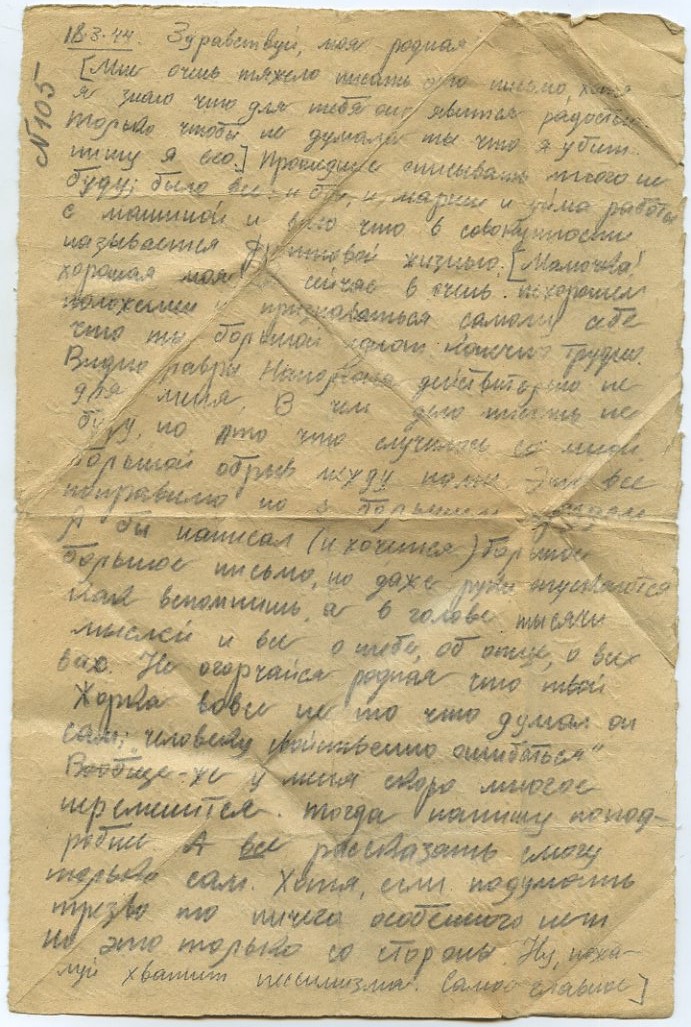 18.3.44. Здравствуй, моя родная
N105
[Мне очень тяжело писать это письмо, хотя
я знаю что для тебя оно явится радостью.
Только чтобы не думала ты что я убит
пишу я его.] Прошедшее описывать много не
буду; было все: и бои, и марши и уйма работы
с машиной и все что в совокупности
называется фронтовой жизнью. [Мамочка!
хорошая моя я сейчас в очень нехорошем
положении и признаваться самому себе
что ты большой конечно трудно.
Видно лавры Наполеона действительно не
для меня. В чем дело писать не
буду, но то что случилось со мной
большой обрыв между нами. Это все
поправимо но с большим
Я бы написал (и хочется) большое
большое письмо, но даже руки опускаются
как вспомнишь, а в голове тысячи
мыслей и все о тебе, об отце, о всех
вас. Не огорчайся родная что твой
Жорка вовсе не то что думал он
сам; „человеку свойственно ошибаться"
Вообще-же у меня скоро многое
переменится. Тогда напишу попод-
робнее. А все рассказать смогу
только сам. Хотя, если подумать
трезво то ничего особенного нет
Но это только со стороны. Ну, пожа-
луй хватит пессимизма. Самое главное]